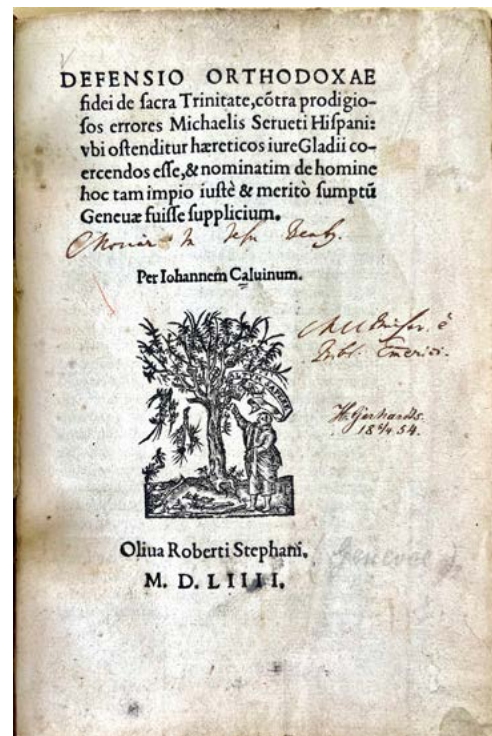 DEFENSIO ORTHODOXAE
fidei de ſacra Trinitate, cõtra prodigio-
ſos errores Michaelis Serueti Hiſpani:
vbi oſtenditur hæreticos iure Gladii co-
ercendos eſſe, & nominatim de homine
hoc tam impio iuſtè & meritò ſumptũ
Geneuæ fuiſſe ſupplicium.
Per Iohannem Caluinum.
H. Gerhardts.
Oliua Roberti Stephani.
Genevae
M. D. LIIII.